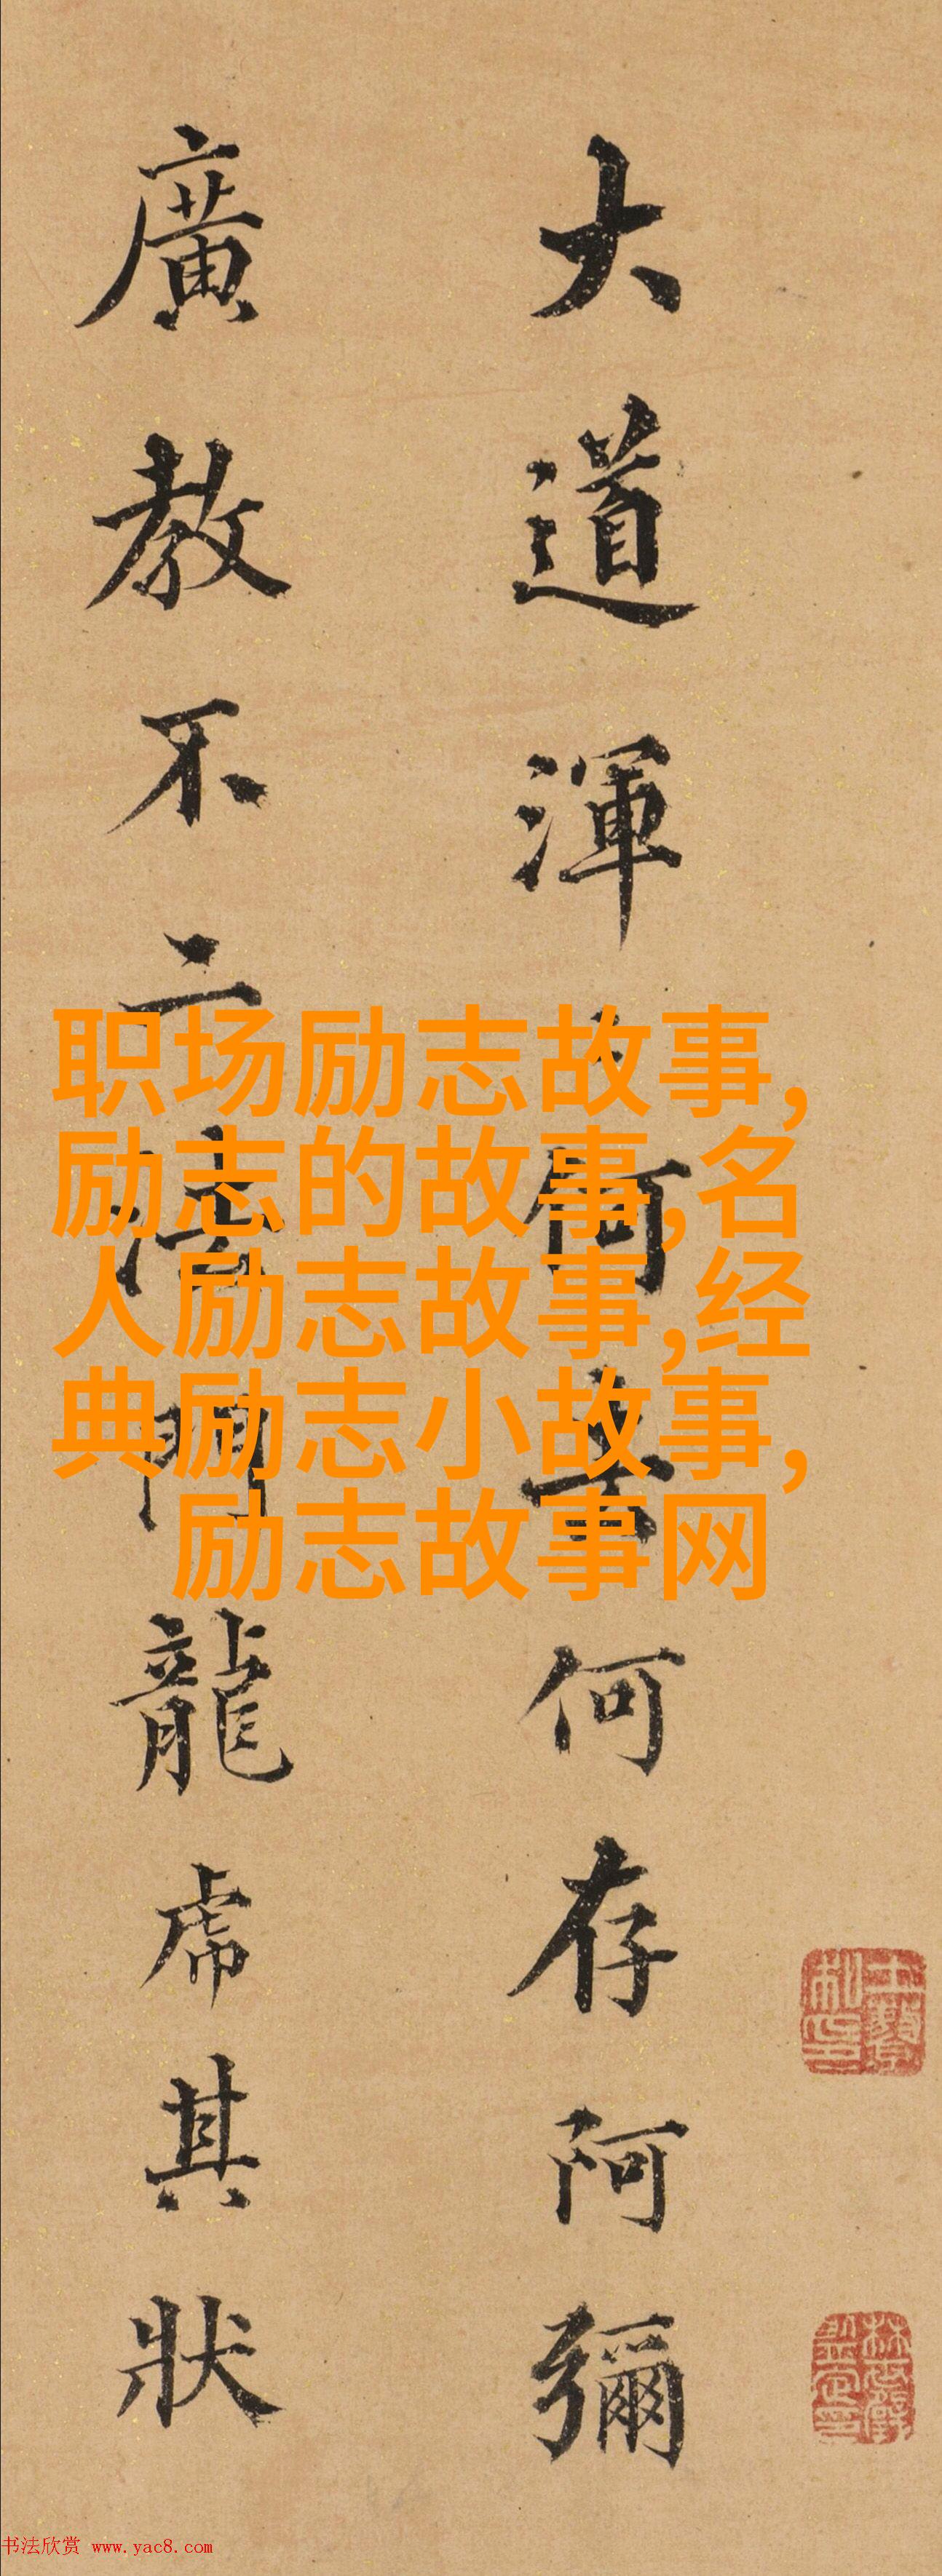 大道渾何何存阿彌
廣教不二法門龍虎其狀
职场励志故事,
励志的故事,名
人励志故事,经
典励志小故事,
励志故事网
书法欣赏 www.yac8.com